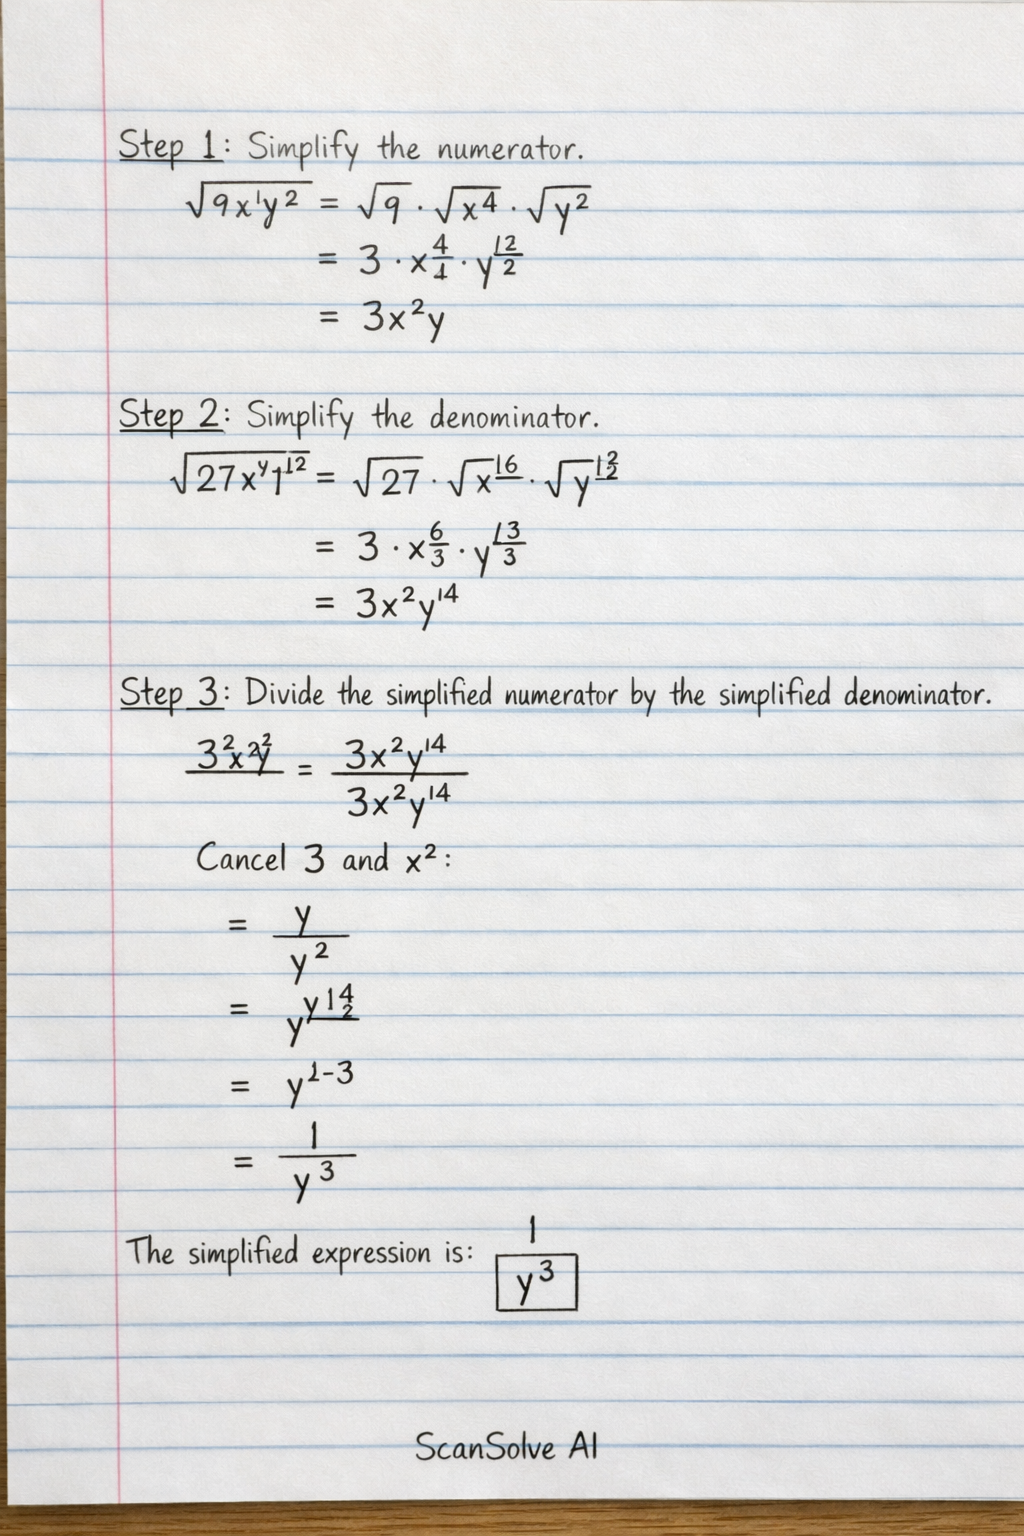 Step 1: Simplify the numerator.
√(9x¹y²) = √9 · √(x⁴) · √(y²)
= 3 · x^(4/1) · y^(12/2)
= 3x²y
Step 2: Simplify the denominator.
√(27xʸ1¹²) = √27 · √x^16 · √y^(12/2)
= 3 · x^(6/3) · y^(13/3)
= 3x²y¹⁴
Step 3: Divide the simplified numerator by the simplified denominator.
3²x²y² = 3x²y¹⁴ / 3x²y¹⁴
Cancel 3 and x²:
= y / y²
= y^(y14/2)
= y^(1-3)
= 1 / y³
The simplified expression is: 1 / y³
ScanSolve AI